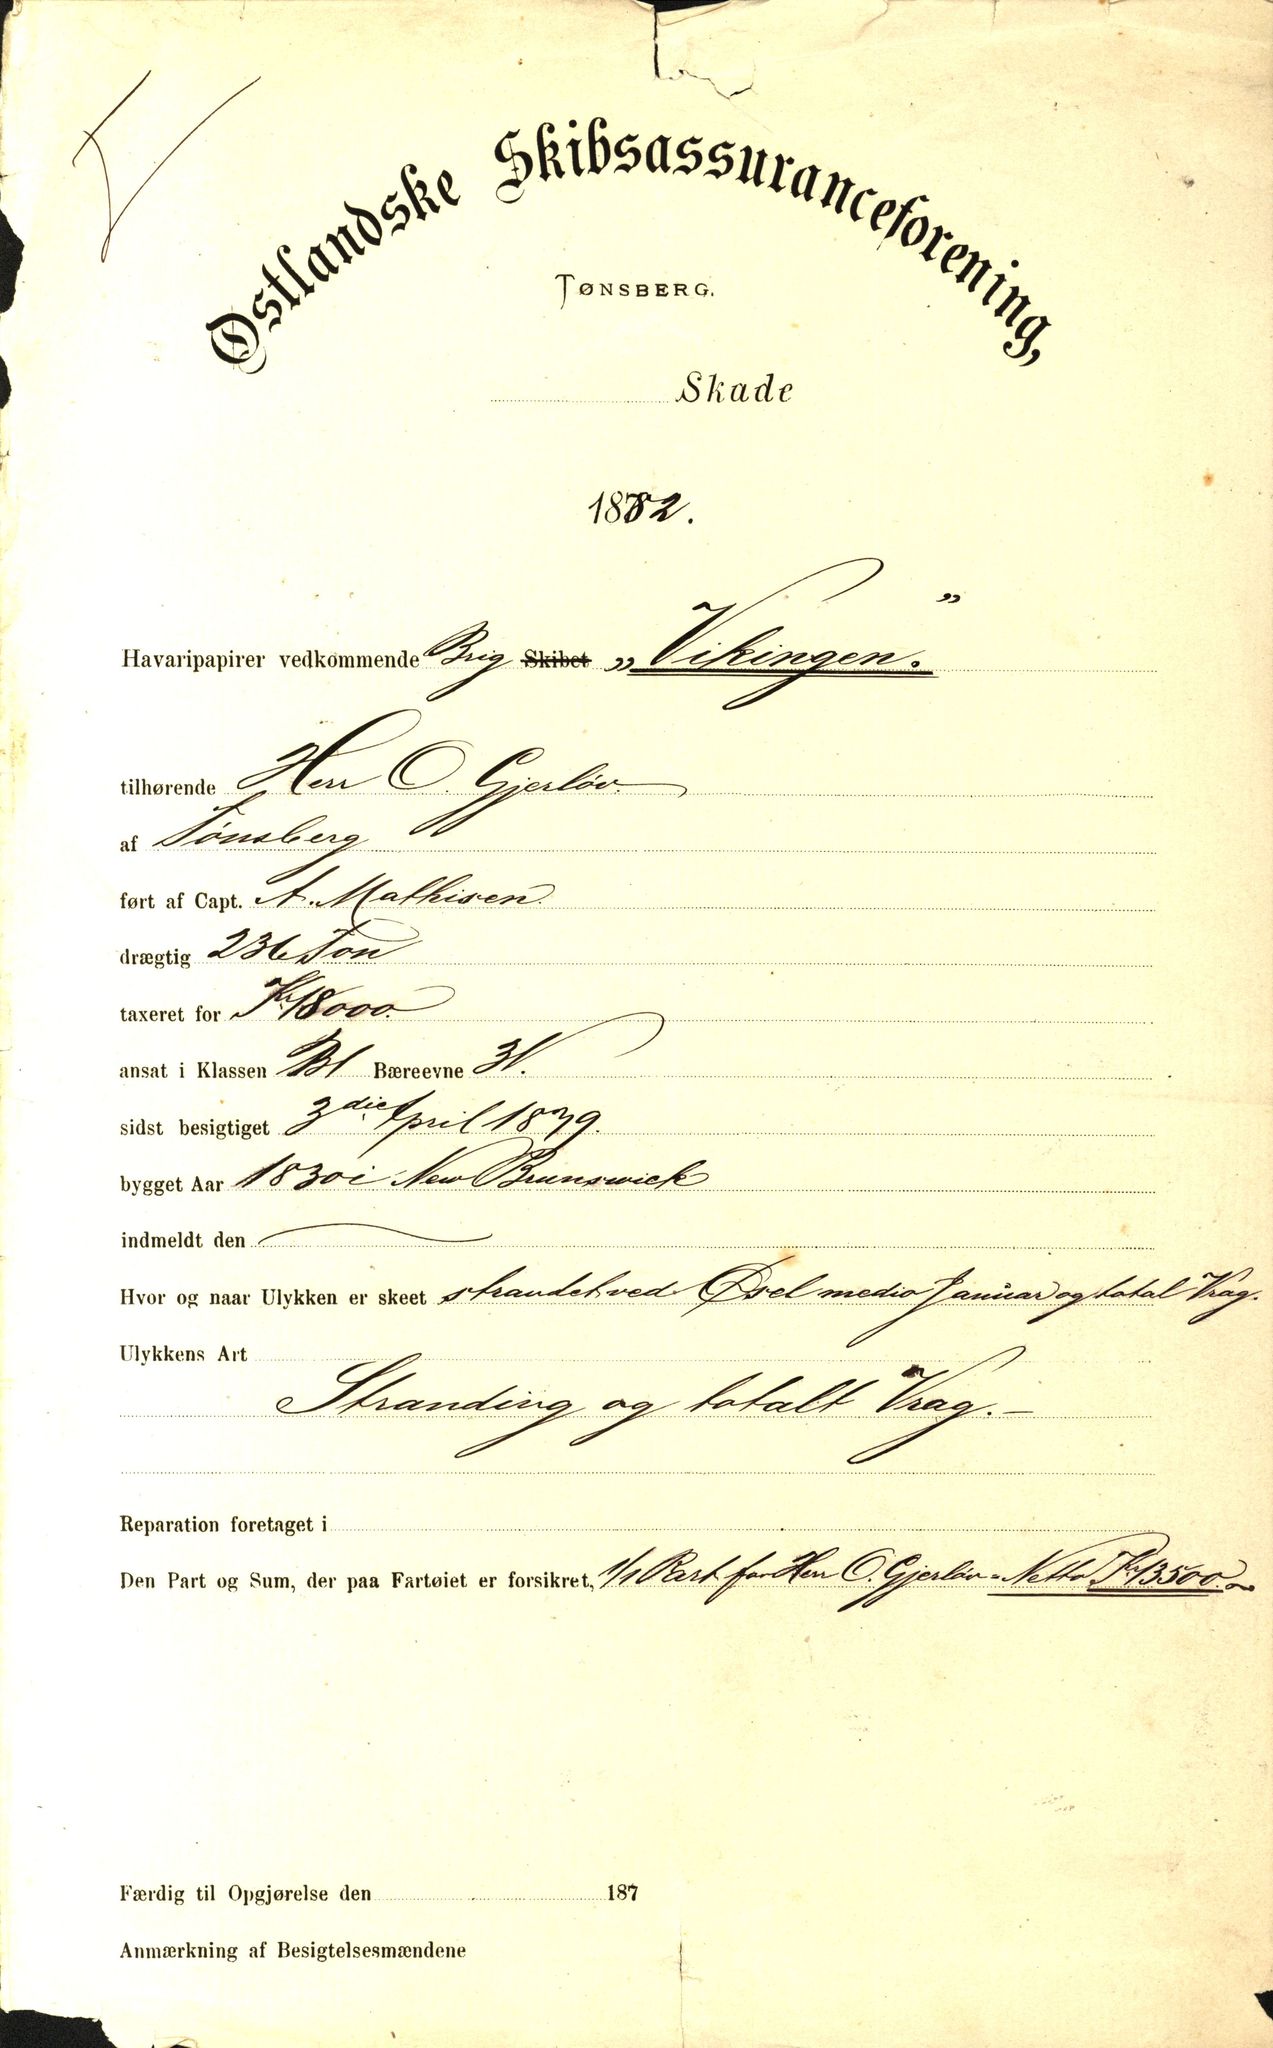 Østlandske Skibsassuranceforening,
TØNSBERG.
Skade
1882.
Havaripapirer vedkommende Brig Skibet „Vikingen."
tilhørende Herr O. Gjerløv.
af Tønsberg
ført af Capt. A. Mathisen.
drægtig 236 Ton
taxeret for Kr. 18000.
ansat i Klassen B1 Bæreevne
sidst besigtiget 3die April 1879.
bygget Aar 1830 i New Brunswick
indmeldt den
Hvor og naar Ulykken er skeet strandet ved Øsel medio Januar og total Vrag.
Ulykkens Art
Stranding og totalt Vrag. —
Reparation foretaget i
Den Part og Sum, der paa Fartøiet er forsikret, 1/1 Part for Herr O. Gjerløv = Netto Kr. 13500.
Færdig til Opgjørelse den 187
Anmærkning af Besigtelsesmændene